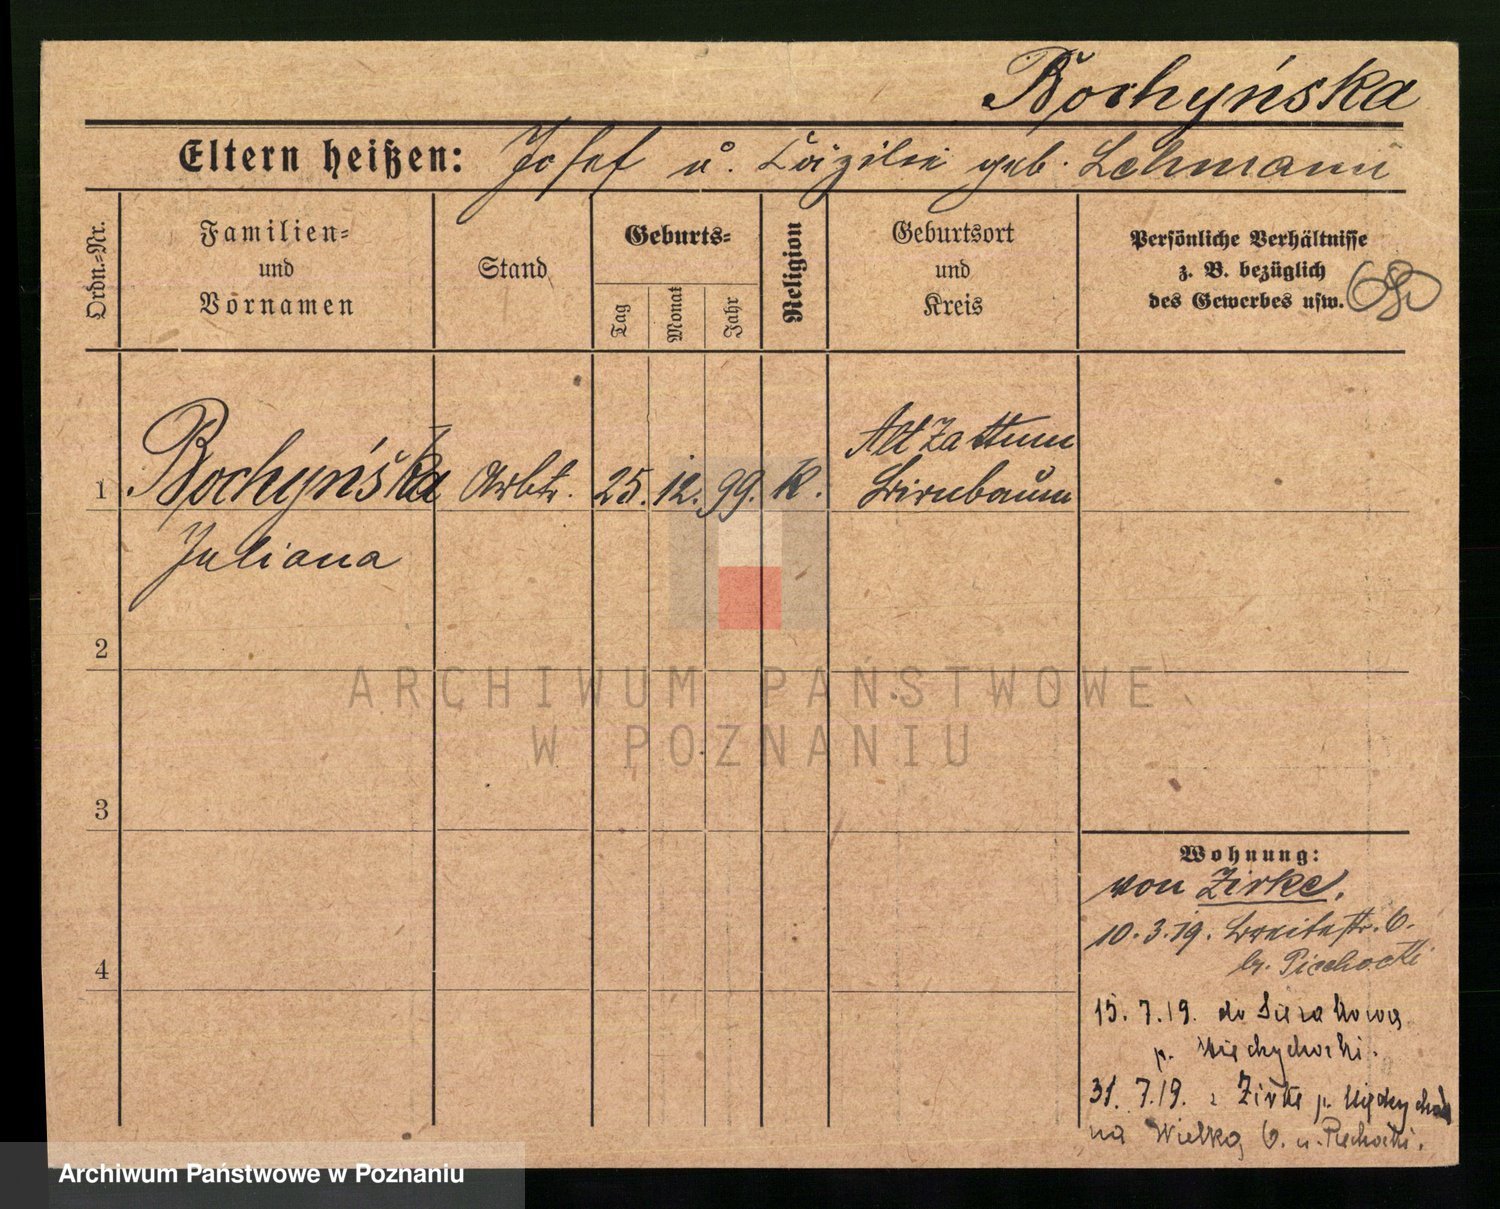 Bochyńska
Eltern heißen: Josef u. Cäzilie geb. Lehmann
Ordn.=Nr.
Familien=
und
Vornamen
Stand
Geburts=
Tag
Monat
Jahr
Religion
Geburtsort
und
Kreis
Persönliche Verhältnisse
z. B. bezüglich
des Gewerbes usw.
1 Bochyńska Arbtr. 25. 12. 99. K. Alt Zattum
Birnbaum
Juliana
2
3
4
ARCHIWUM PAŃSTWOWE
W POZNANIU
Wohnung:
von Zirke.
10.3.19. Breitestr. 6.
b. Piechocki
15.7.19. do Sierakowa
p.
31.7.19. z Zirke p. Międzychód
na Wielką 6. u. Piechocki.
Archiwum Państwowe w Poznaniu